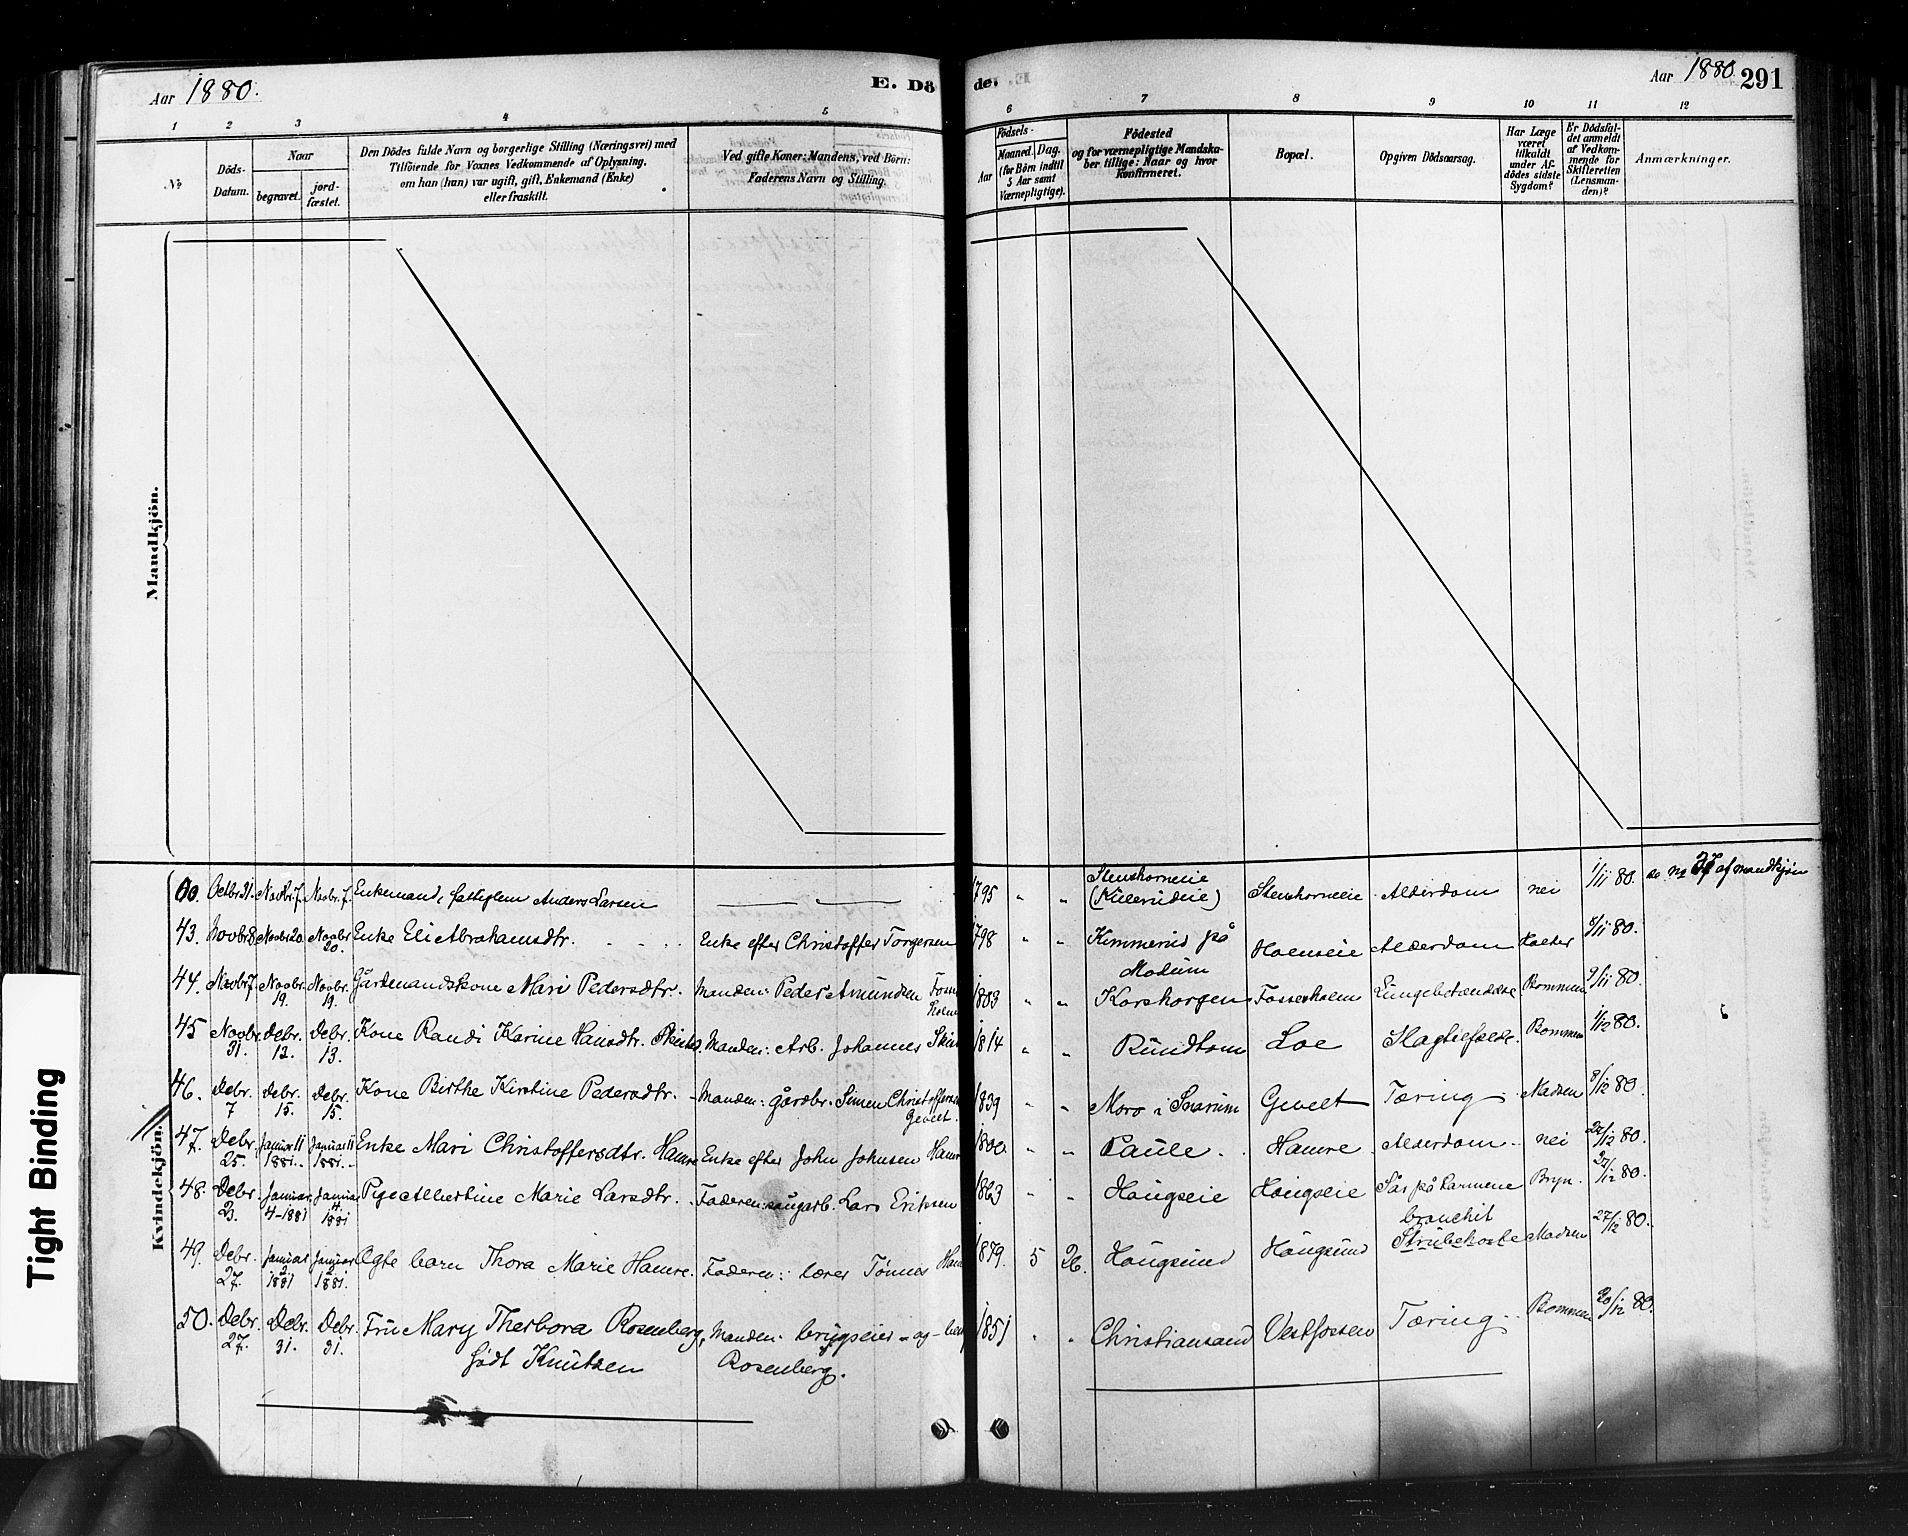 Aar 1880.
E. Dö
de.
Aar 1880. 291
1 2 3 4 5
6 7 8 9 10 11 12
No
Döds-Datum.
Naar
begravet.
jord-fæstet.
Den Dödes fulde Navn og borgerlige Stilling (Næringsvei) med
Tilföiende for Voxnes Vedkommende af Oplysning,
om han (hun) var ugift, gift, Enkemand (Enke)
eller fraskilt.
Ved gifte Koner: Mandens, ved Börn:
Faderens Navn og Stilling.
Födsels-
Aar
Maaned. Dag.
(for Börn indtil
5 Aar samt
Værnepligtige).
Födested
og for værnepligtige Mandska-
ber tillige: Naar og hvor
konfirmeret.
Bopæl.
Opgiven Dödsaarsag.
Har Læge
været
tilkaldt
under Af-
dödes sidste
Sygdom?
Er Dödsfal-
det anmeldt
af Vedkom-
mende for
Skifteretten
(Lensman-
den)?
Anmærkninger.
Mandkjön.
Kvindekjön.
Octbr. 31. Novbr. 7. Novbr. 7. Enkemand, fattiglem Anders Larsen 1795 " " Stenshorneie (Kulerudeie) Stenshorneie Alderdom nei 1/11 80. se no 37 af mandkjøn
43. Novbr 8. Novbr 20. Novbr. 20. Enke Eli Abrahamsdtr. Enke efter Christoffer Torgersen 1798 " " Kimmerud på Modum Holmseie Alderdom Holter 8/11 80.
44. Novbr 7. Novbr. 19. Novbr. 19. Gårdmandskone Mari Pedersdtr. Manden: Peder Amundsen 1803 " " Korshorgen Fossesholm Lungebetændelse Bommen 9/11 80.
45 Novbr. 31. Debr. 13. Debr. 13. Kone Randi Karine Hansdtr. Manden: Arb. Johannes 1814 " " Rundtom Loe Slagtilfælde. Bommen 1/12 80.
46. Debr. 7 Debr. 15. Debr. 15. Kone Birthe Kirstine Pedersdtr. Manden: gårdbr. Simen Christoffersen Gevelt. 1839 " " Moro i Snarum Gevelt Tæring Madsen 8/12 80.
47. Debr. 25. Januar 11 1881. Januar 11 1881. Enke Mari Christoffersdtr. Hamre Enke efter John Johnsen Hamre 1800. " " Paule. Hamre Alderdom nei 27/12 80.
48. Debr. 23. Januar 4-1881 Januar 4 1881 Pige Albertine Marie Larsdtr. Faderen: saugarb. Lars Eriksen 1863 " " Hougseie Hougseie Sår på tarmene Bryn. 27/12 80.
49. Debr. 27. Januar 1881 Januar 1881. Ægte barn Thora Marie Hamre. Faderen: lærer Tønnes 1879. 5 26. Hougsund Hougsund bronchit Strubehoste Madsen 27/12 80.
50. Debr. 27. Debr. 31. Debr. 31. Fru Mary Therbora Rosenberg, født Knutzen Manden: brugseier Rosenberg. 1851 " " Christiansand Vestfossen Tæring Bommen 30/12 80.
Tight Binding